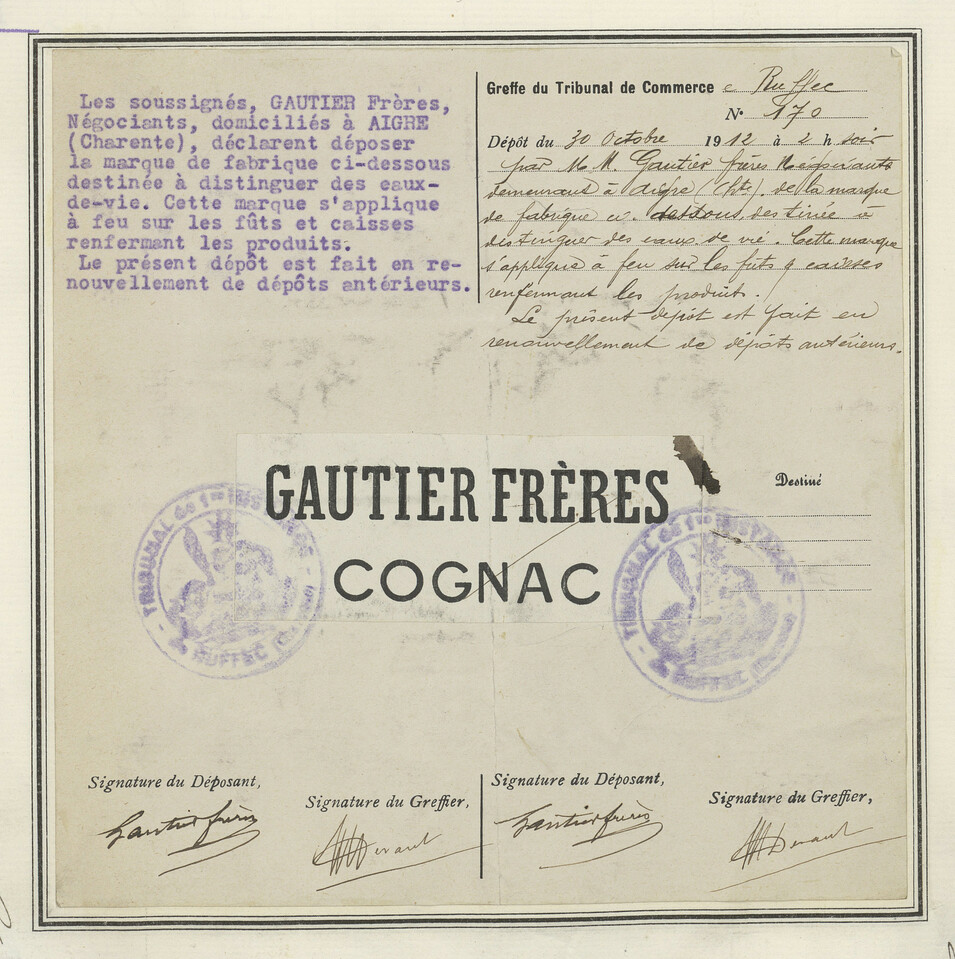 Les soussignés, GAUTIER Frères,
Négociants, domiciliés à AIGRE
(Charente), déclarent déposer
la marque de fabrique ci-dessous
destinée à distinguer des eaux-
de-vie. Cette marque s'applique
à feu sur les fûts et caisses
renfermant les produits.
Le présent dépôt est fait en re-
nouvellement de dépôts antérieurs.
Greffe du Tribunal de Commerce Ruffec
N° 170
Dépôt du 30 Octobre 1912 à 2 h soir
par M.M. Gautier frères Négociants
demeurant à Aigre (Chte), de la marque
de fabrique ci-dessous, destinée à
distinguer des eaux de vie. Cette marque
s'applique à feu sur les futs & caisses
renfermant les produits.
Le présent dépôt est fait en
renouvellement de dépôts antérieurs.
GAUTIER FRÈRES
COGNAC
Destiné
TRIBUNAL de 1re INSTANCE
DE RUFFEC
TRIBUNAL de 1re INSTANCE
DE RUFFEC
Signature du Déposant,
Signature du Greffier,
Gautier frères
Signature du Déposant,
Signature du Greffier,
Gautier frères